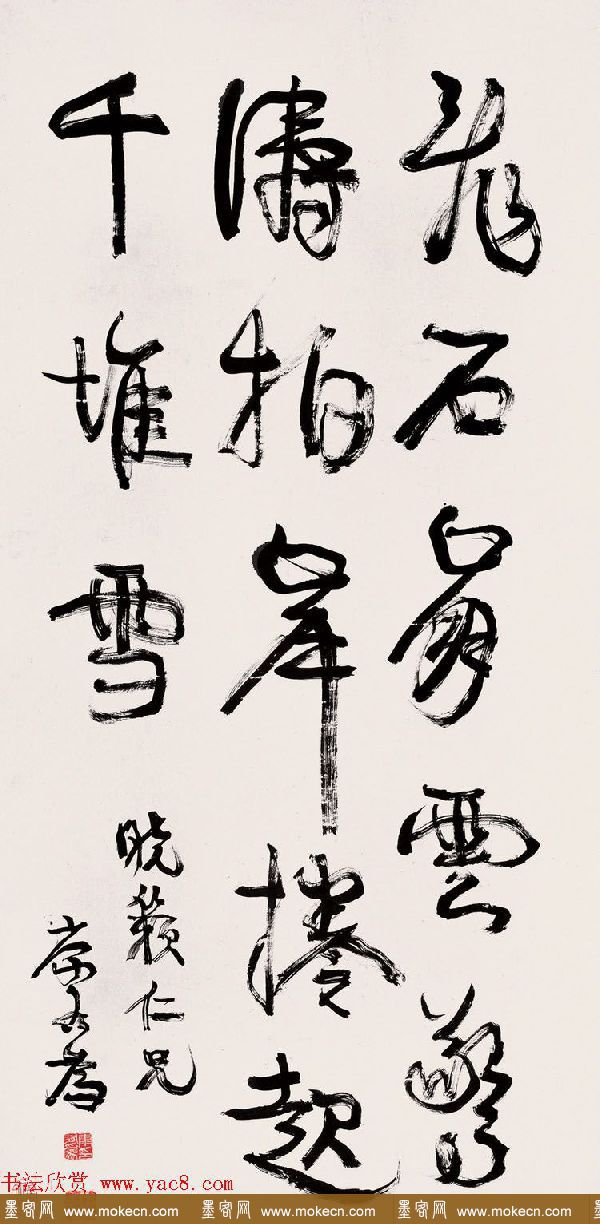 石崩雲驚
濤拍岸捲起
千堆雪
曉籟仁兄
康有為
书法欣赏 www.yac8.com
墨客网 www.mokecn.com 墨客网 www.mokecn.com 墨客网 www.mokecn.com